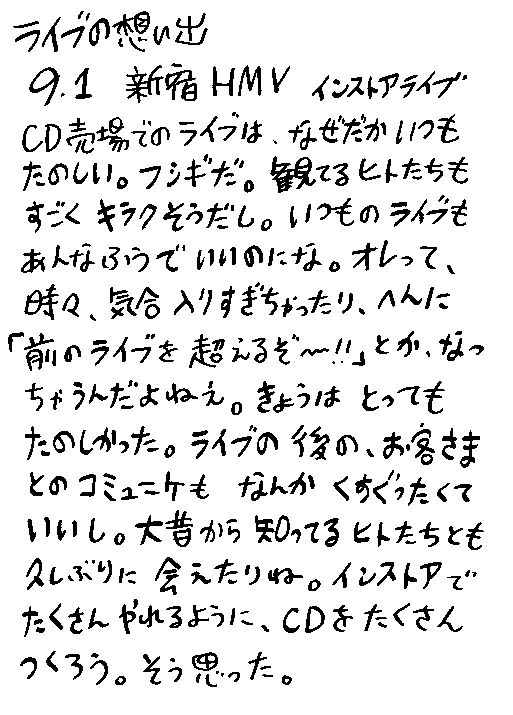 ライブの想い出
9.1 新宿HMV インストアライブ
CD売場でのライブは、なぜだかいつも
たのしい。フシギだ。観てるヒトたちも
すごくキラクそうだし。いつものライブも
あんなふうでいいのにな。オレって、
時々、気合入りすぎちゃったり、へんに
「前のライブを超えるぞ〜!!」とか、なっ
ちゃうんだよねえ。きょうはとっても
たのしかった。ライブの後の、お客さま
とのコミュニケもなんかくすぐったくて
いいし。大昔から知ってるヒトたちとも
久しぶりに会えたりね。インストアで
たくさんやれるように、CDをたくさん
つくろう。そう思った。